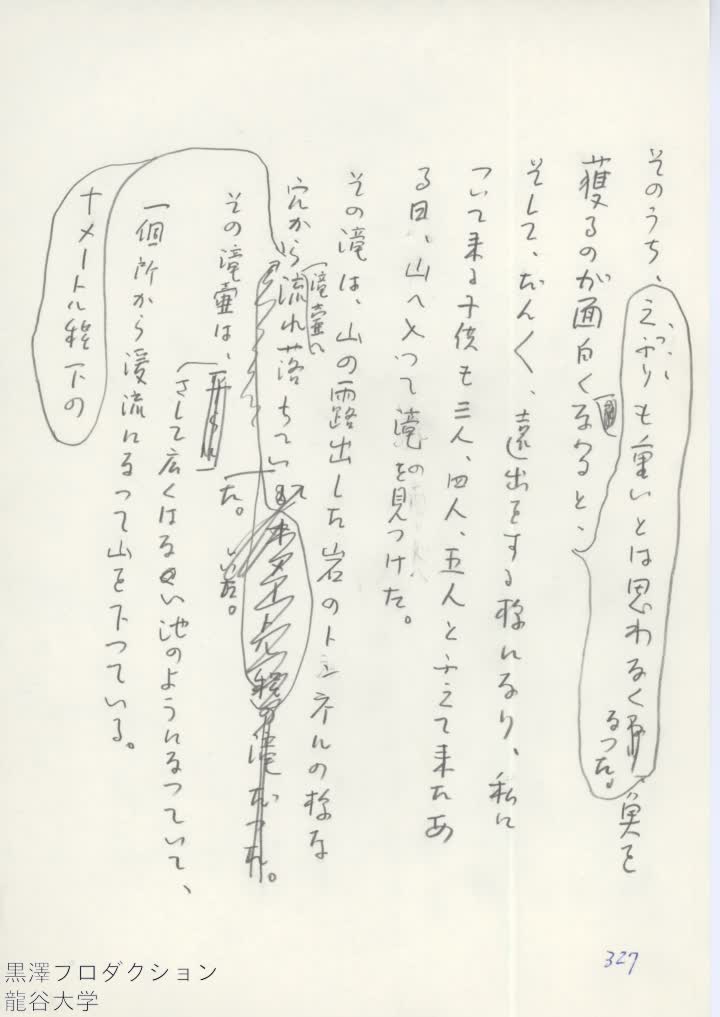 そのうち、立ぶりも重いとは思わなくなつた。魚を
獲るのが面白くなると、
そして、だんく、遠出をする様になり、私に
ついて来る子供も三人、四人、五人とふえて来たあ
る日、山へ入つて滝を見つけた。
その滝は、山の露出した岩のトンネルの様な
穴から
滝壷に
流れ落ちてい
いた。
その滝壷は、
た。
さして広くはない池のようになつていて、
一個所から渓流になつて山を下つている。
十メートル程下の
327
黒澤プロダクション
龍谷大学